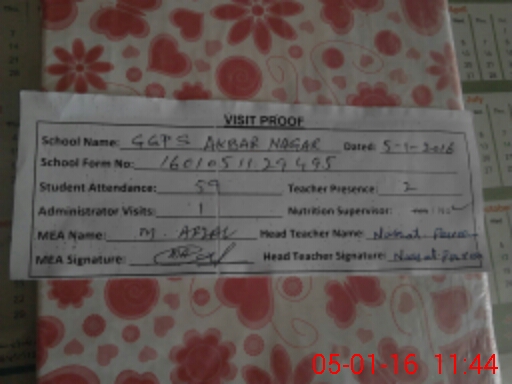 VISIT PROOF
School Name: GGPS AKBAR NAGAR Dated: 5-1-2016
School Form No: 1601051129495
Student Attendance: 59 Teacher Presence: 2
Administrator Visits: 1 Nutrition Supervisor: No
MEA Name: M. AFZAL Head Teacher Name: Nusrat Parveen
MEA Signature: Head Teacher Signature: Nusrat Parveen
05-01-16 11:44